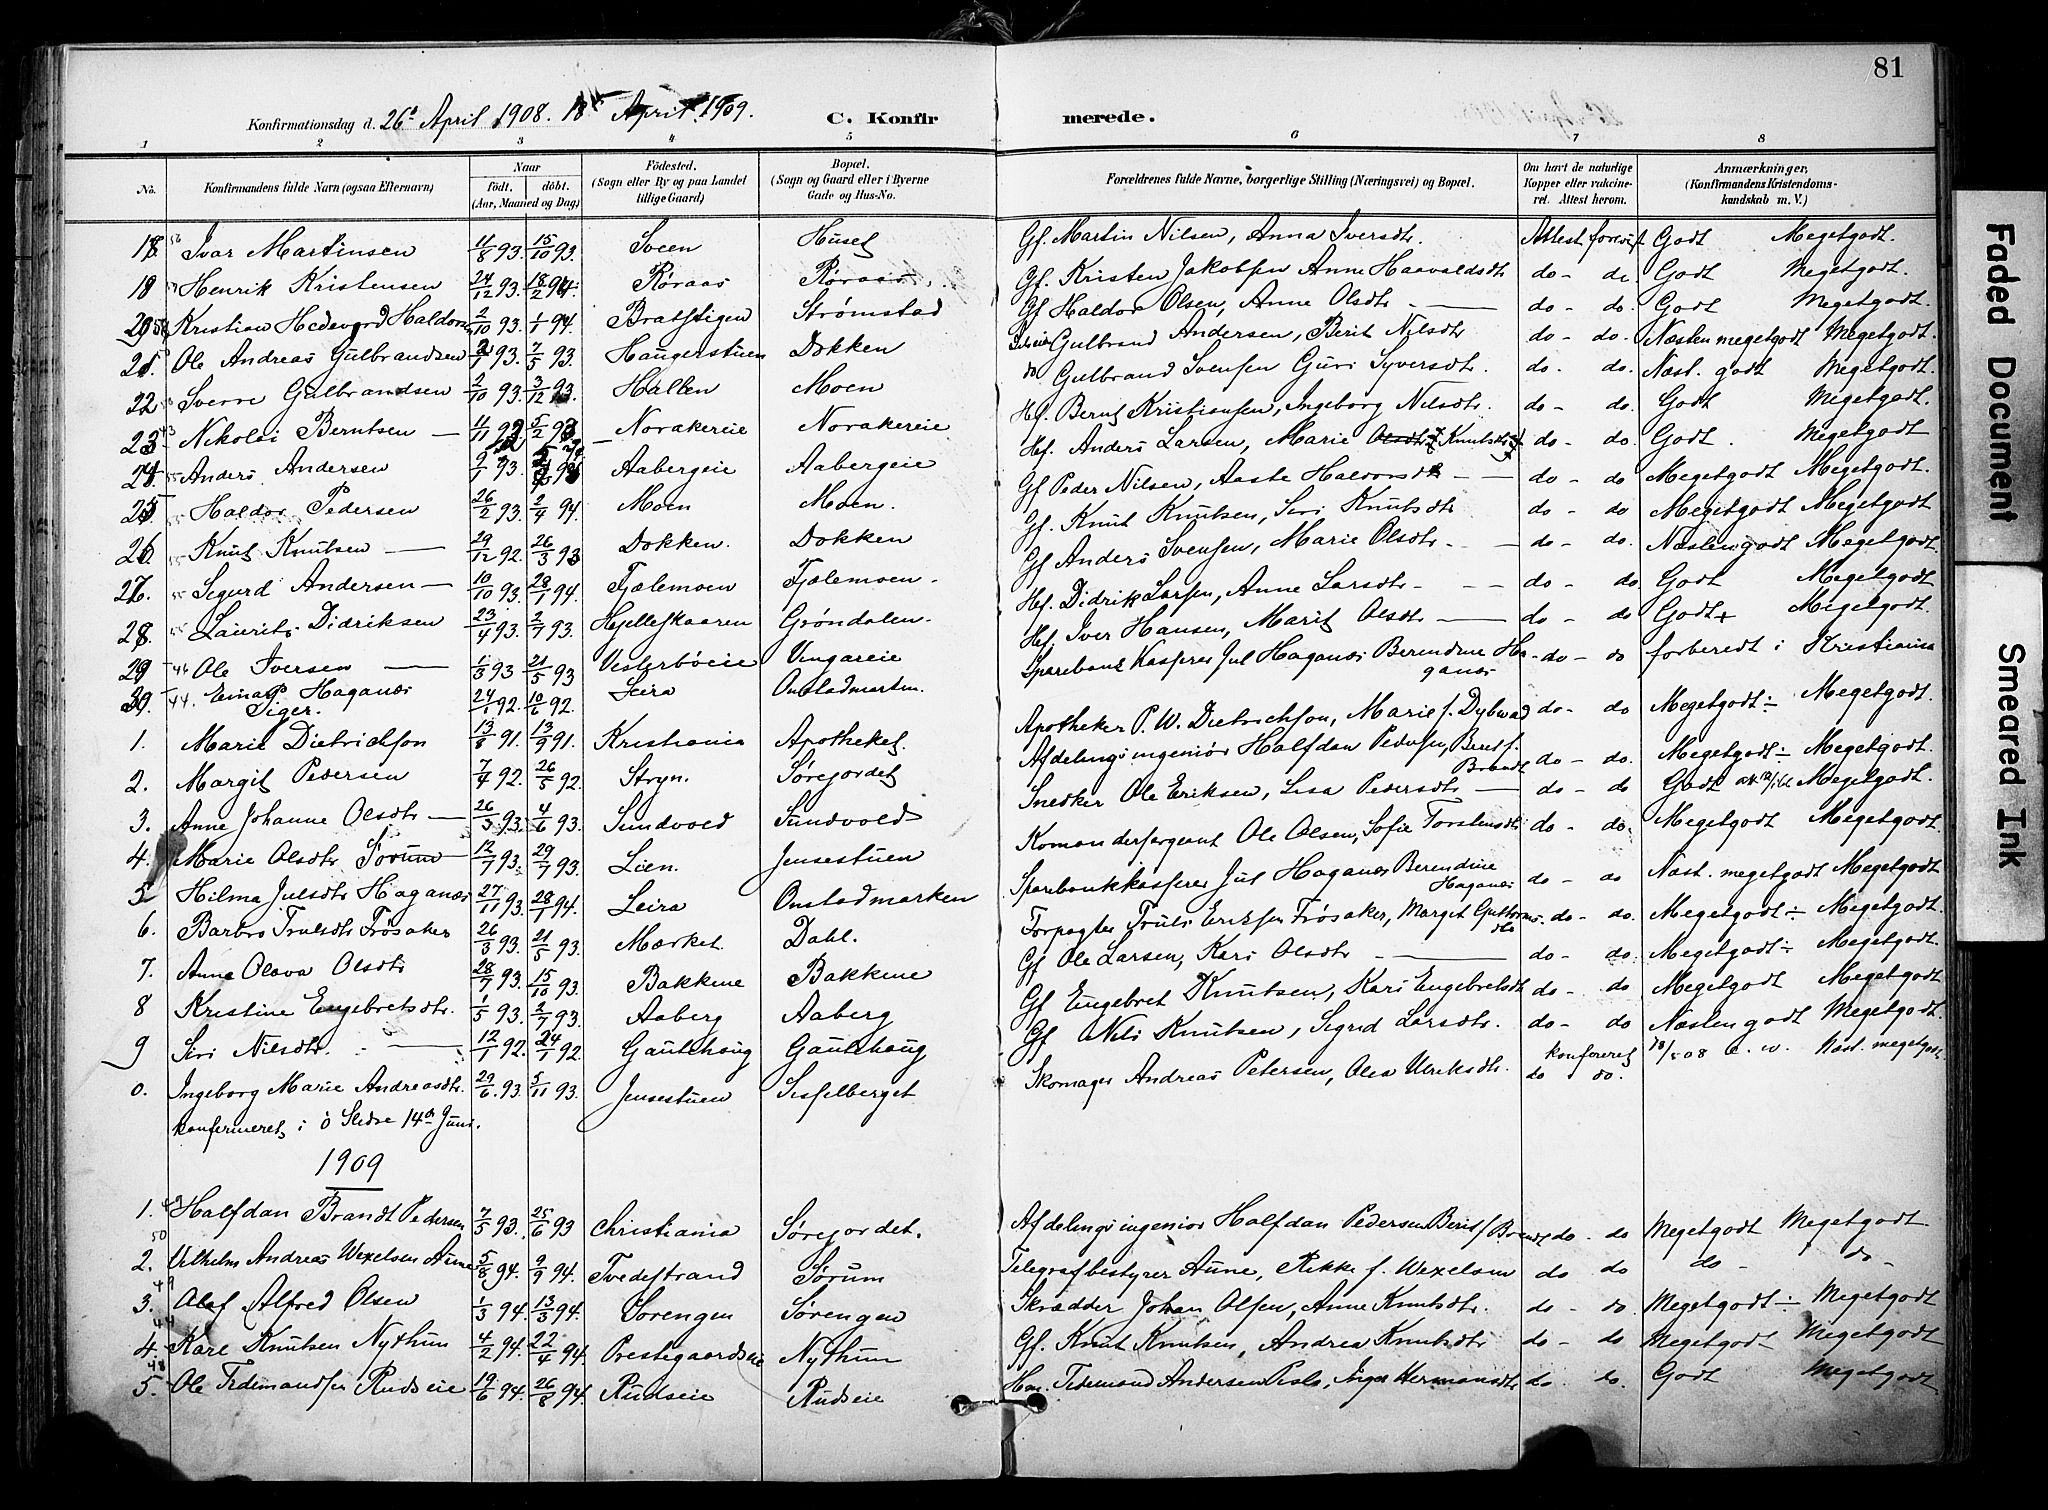 81
Konfirmationsdag d. 26d April 1908. 18de April 1909. C. Konfirmerede.
1 2 3 4 5 6 7 8
No. Konfirmandens fulde Navn (ogsaa Efternavn) Naar født. døbt. (Aar, Maaned og Dag) Fødested. (Sogn eller By og paa Landet tillige Gaard) Bopæl. (Sogn og Gaard eller i Byerne Gade og Hus-No. Forældrenes fulde Navne, borgerlige Stilling (Næringsvei) og Bopæl. Om havt de naturlige Kopper eller vakcineret. Attest herom. Anmærkninger, (Konfirmandens Kristendomskundskab m. V.)
18 Ivar Martinsen 11/8 93. 15/10 93. Sveen Huset Gf. Martin Nilsen, Anna Iversdtr. Attest forevist Godt Megetgodt.
19 Henrik Kristensen 24/12 93. 18/2 94. Røraas Røraas Gf. Kristen Jakobsen Anne Haavaldsdtr do - do Godt Megetgodt.
20 Kristian Hedevard Haldorsen 2/10 93. 1/1 94. Bratstigen Strømstad Gf Haldor Olsen, Anne Olsdtr - do - do. Godt Megetgodt.
21. Ole Andreas Gulbrandsen 93. 7/5 93. Haugerstuen Dokken Gulbrand Andersen, Berit Nilsdtr do - do. Næsten megetgodt Megetgodt.
22 Sverre Gulbrandsen 2/10 93. 3/12 93. Hallen Moen do Gulbrand Svensen Guri Syversdtr. do. do. Næst. godt Megetgodt.
23 Nikolai Berntsen - 11/11 92 5/2 93 Norakereie Norakereie Hf. Bernt Kristiansen, Ingeborg Nilsdtr. do - do. Godt Megetgodt.
24. Anders Andersen 9/1 93. Aabergeie Aabergeie Hf. Anders Larsen, Marie Knutsdtr do - do. Godt. Megetgodt
25 Haldor Pedersen 26/2 93. 2/4 94. Moen Moen. Gf Peder Nilsen, Aaste Haldorsdtr - do - do Megetgodt Megetgodt.
26 Knut Knutsen - 29/12 92. 26/3 93 Dokken. Dokken Gf. Knut Knutsen, Siri Knutsdtr do - do Megetgodt Megetgodt
27. Sigurd Andersen - 10/10 93. 28/1 94. Fjælemoen Fjælemoen. Gf Anders Svensen, Marie Olsdtr. - do - do. Næsten godt Megetgodt.
28. Laurits Didriksen 23/4 93. 2/7 93. Hjelleskaaren Grøndalen. Hf. Didrik Larsen, Anne Larsdtr - do - do Godt Megetgodt
29 Ole Iversen - 1/3 93 21/5 93 Vesterbøeie Vengareie Hf. Iver Hansen, Marit Olsdtr - do - do Godt+ Megetgodt.
30. Einar Haganæs 24/1 92. 10/6 92. Leira Onstadmarken. Sparebank Kasserer Jul Haganæs Berendine Haganæs - do - do forberedt i Kristiania
Piger.
1. Marie Dietrichson 13/8 91. 13/9 91. Kristiania Apotheket. Apotheker P. W. Dietrichson, Marie f. Dybwad do - do Megetgodt÷ Megetgodt.
2. Margit Pedersen 7/4 92. 26/5 92. Stryn. Sørejordet Afdelingsingeniør Halfdan Pedersen, Berit f. Brandt do - do. Megetgodt÷ Megetgodt.
3. Anne Johanne Olsdtr - 26/3 93. 4/6 93. Sundvold Sundvold Snedker Ole Eriksen, Lisa Pedersdtr - do - do Godt Megetgodt.
4. Marie Olsdtr Sørum 12/7 93. 29/7 93. Lien. Jensestuen Komandersergeant Ole Olsen, Sofie Torstensdtr do - do. Megetgodt Megetgodt.
5 Hilma Julsdtr Haganæs 27/11 93. 28/1 94. Leira Onstadmarken Sparebankkasserer Jul Haganæs Berendine Haganæs do - do Næst. megetgodt Megetgodt.
6. Barbro Trulsdtr Frøsaker 26/3 93. 21/5 93. Market. Dahl. Forpagter Truls Eriksen Frøsaker, Margit Guttormsdtr do - do. Megetgodt÷ Megetgodt.
7. Anne Olava Olsdtr 28/7 93. 15/10 93. Bakkene Bakkene Gf Ole Larsen, Kari Olsdtr - do - do. Megetgodt÷ Megetgodt.
8 Kristine Engebretsdtr. 1/5 93. 2/7 93. Aaberg Aaberg Gf Engebret Knutsen, Kari Engebretsdtr do - do Megetgodt Megetgodt
9 Siri Nilsdtr. - 12/1 92. 24/1 92. Gautehoug Gautehoug Gf Nils Knutsen, Sigrid Larsdtr. do - do Næsten godt Megetgodt.
0. Ingeborg Marie Andreasdtr. 29/6 93. 5/11 93. Jensestuen Sisselberget Skomager Andreas Petersen, Olea Ulriksdtr. do do. 08 Næst. megetgodt
konfermeret i ø Slidre 14de Juni.
1909
1. Halfdan Brandt Pedersen 7/5 93. 25/6 93 Christiania Sørejordet. Afdelingsingeniør Halfdan Pedersen Berit f Brandt do - do Megetgodt Megetgodt
2. Vilhelm Andreas Wexelsen Aune 5/8 94. 9/9 94. Tvedestrand Sørum Telegrafbestyrer Aune, Rikke f. Wexelsen do do do - do -
3. Olaf Alfred Olsen 1/3 94. 13/3 94. Sorengen Sørengen Skrædder Johan Olsen, Anne Knutsdtr. do - do. Megetgodt÷ Megetgodt
4. Karl Knutsen Nythun 4/2 94. 22/4 94. Prestegaardseie Nythun Gf. Knut Knutsen, Andrea Knutsdtr do - do Megetgodt - Megetgodt
5. Ole Tidemandsen Rudseie 19/6 94. 26/8 94. Rudseie Rudseie Tidemand Andersen, Inger Hermansdtr do. do. Godt Megetgodt
Faded Document
Smeared Ink